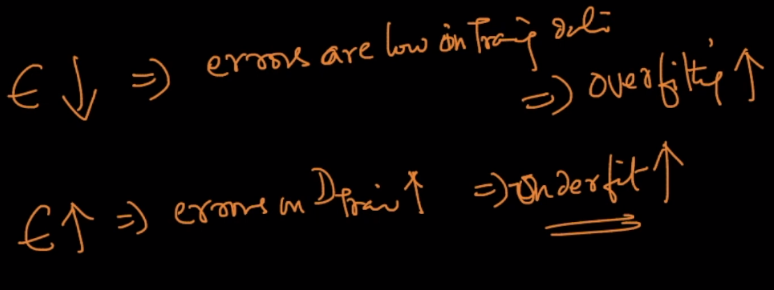 ϵ ↓ ⇒ errors are low on Traing data
⇒ overfitting ↑
ϵ ↑ ⇒ errors on D Train ↑ ⇒ underfit ↑